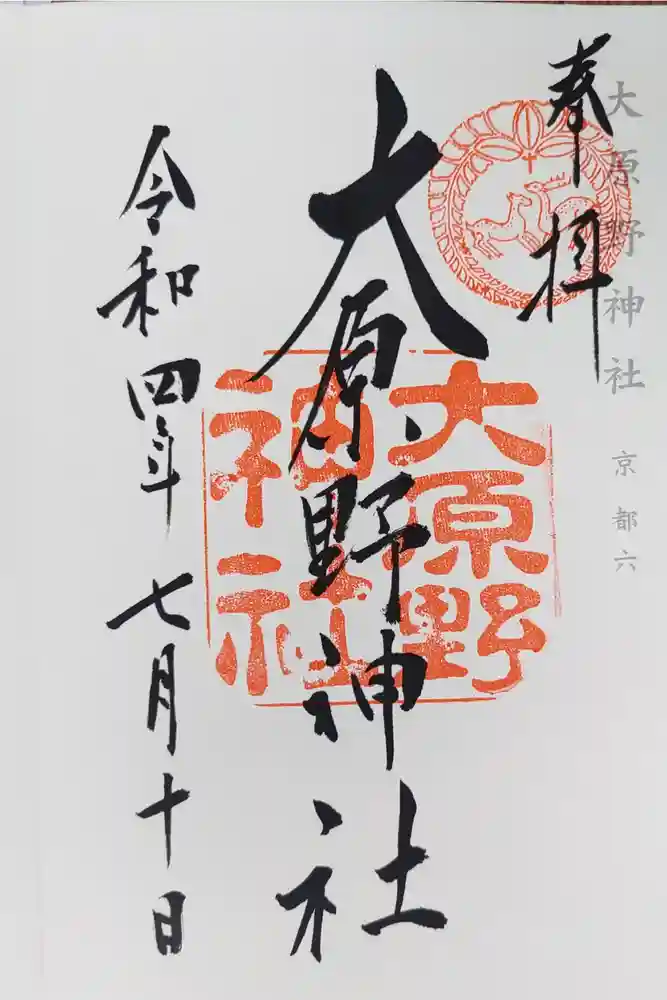 大原野神社 京都六
奉拝
大原野神社
大原野
神社
令和四年七月十日